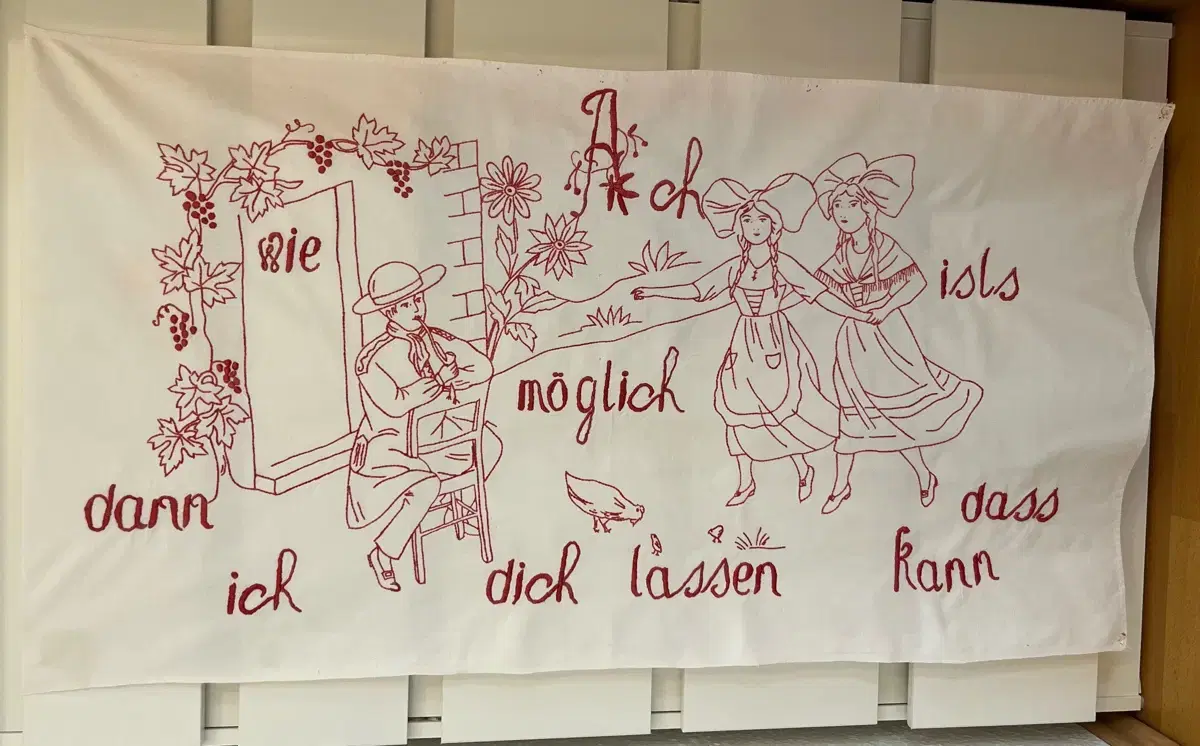 Ach
wie isls
möglich
dann dass
ich dich lassen kann